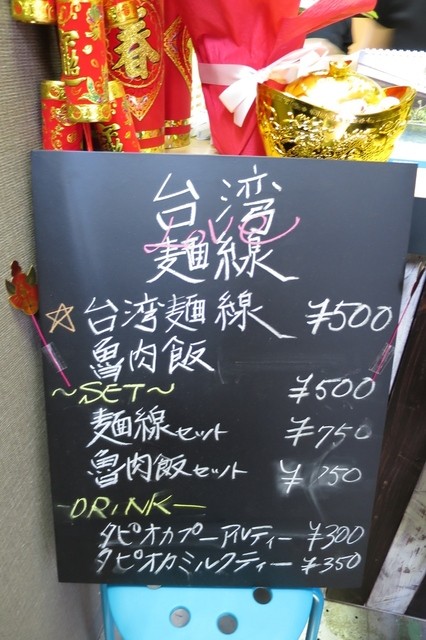 春
台湾
Love
麺線
☆台湾麺線 ¥500
魯肉飯
¥500
~SET~
麺線セット ¥750
魯肉飯セット ¥750
DRiNK
タピオカプーアルティー ¥300
タピオカミルクティー ¥350